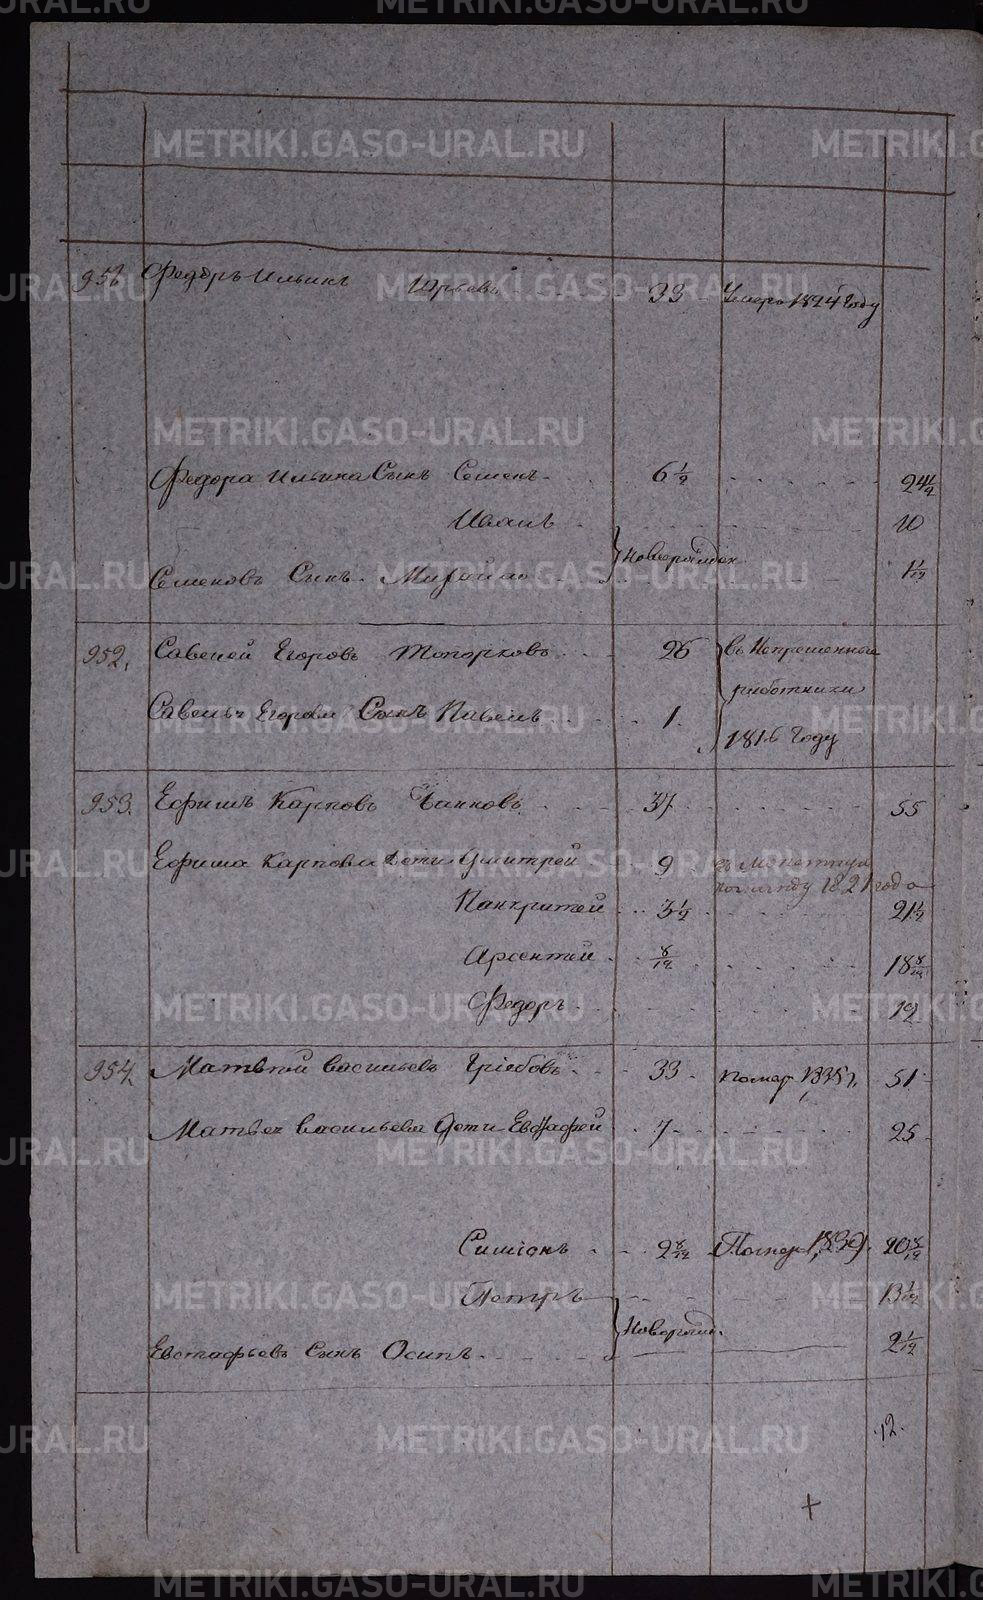 METRIKI.GASO-URAL.RU
951. Федоръ Ильинъ Юрьевъ 33 Умеръ 1824 Году
Федора Ильина Сынъ Семенъ 6 1/2 24 1/2
Иванъ 10
Новорожден
Семеновъ Сынъ Михайло 1 1/12
952. Савелей Егоровъ Топорковъ 26 въ Непременные
работники
Савелья Егорова Сынъ Павелъ 1 1816 Году
953. Ефимъ Карповъ 37 55
Ефима Карпова дети Дмитрей 9 въ
команду 1821 года
Панкратей 3 1/2 21 1/2
Арсентей 8/12 18 8/12
Федоръ 12
954. Матвей Васильевъ Грибовъ 33 Помер 1835 г. 51
Матвея Васильева Дети Евстафей 7 25
Симионъ 2 8/12 Помер 1830 20 8/12
Петръ 13 1/12
Новорожд.
Евстафьевъ Сынъ Осипъ 2 1/12
12.
+